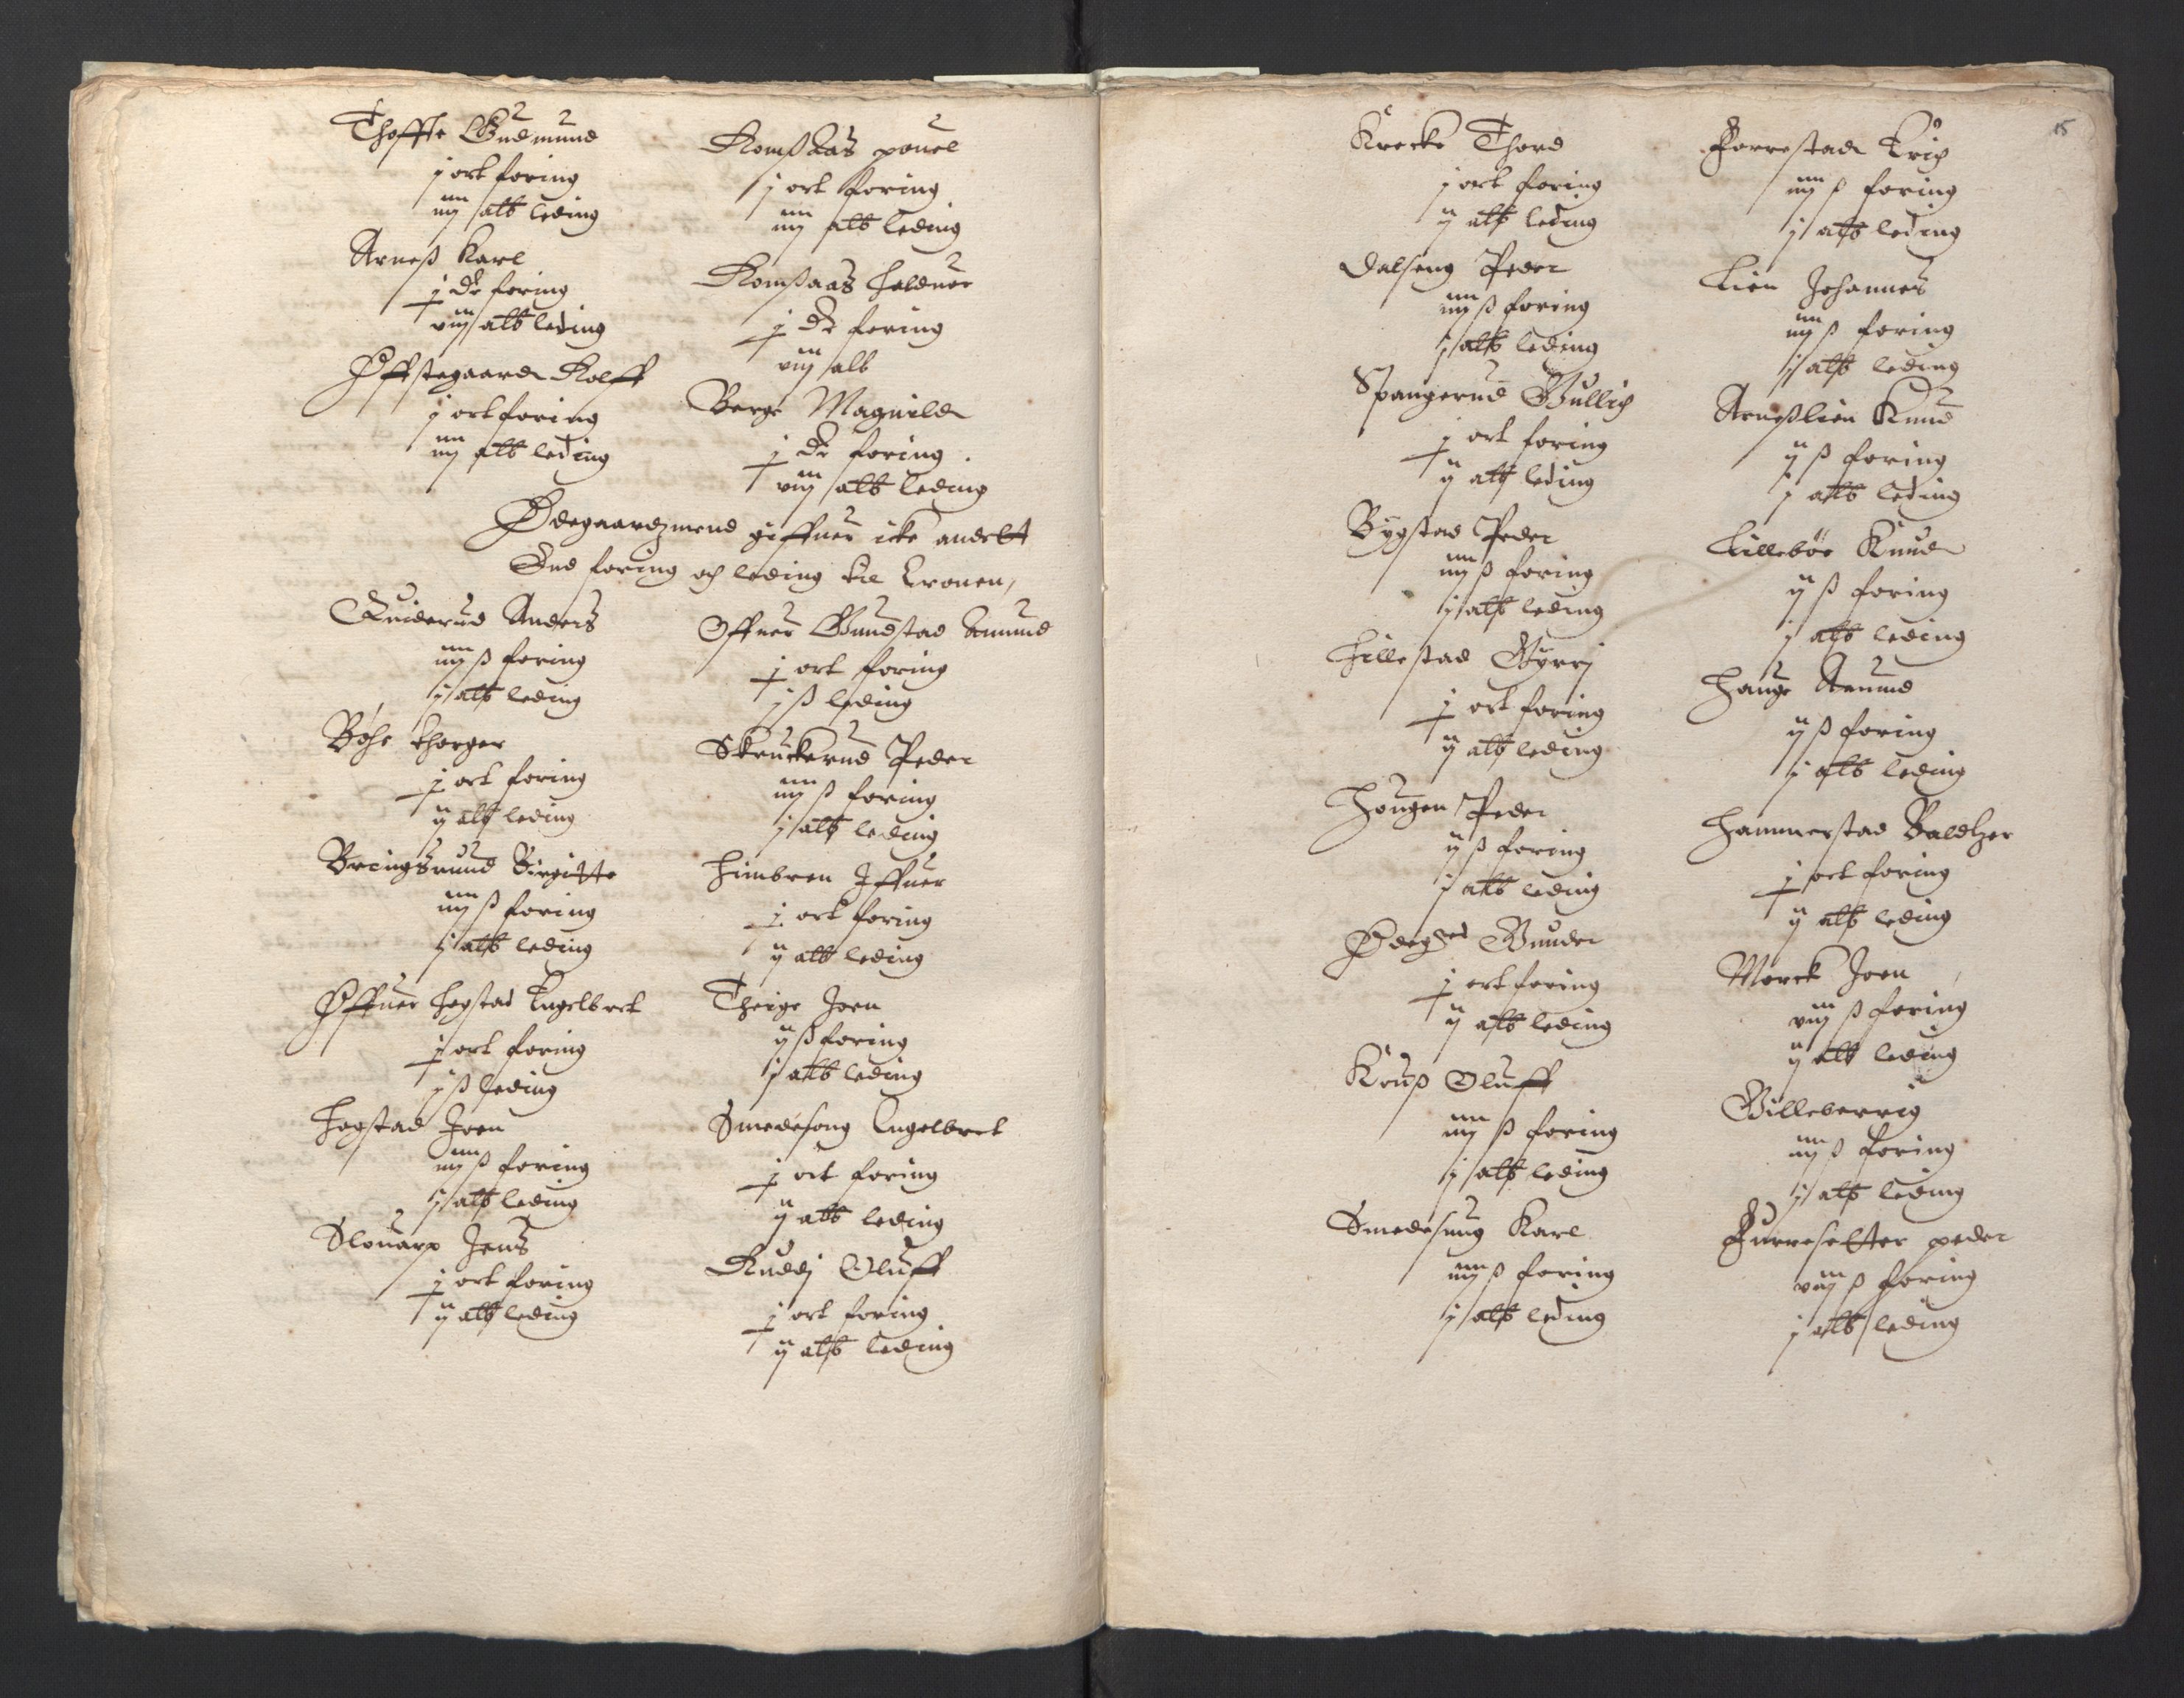 Thoffte Gudmund
j ort foring
iiij alb leding
Arneß Karl
j Dr foring
viij alb leding
Øffstegaard Rolff
j ort foring
iiij alb leding
Romßaas pouel
j ort foring
iiij alb leding
Romßaas Halduor
j Dr foring
viij alb
Berge Magnild
j Dr foring
viij alb leding
Ødegaardzmend giffuer icke andet
End foring och leding til Cronen,
Quiderud Anders
iiij ß foring
j alb leding
Böhe thorger
j ort foring
ij alb leding
Bringsrund Birgitte
iiij ß foring
j alb leding
Øffuer Hogstad Engelbret
j ort foring
j ß leding
Hogstad Joen
iiij ß foring
j alb leding
Slouarp Jens
j ort foring
ij alb leding
Offuer Gundstad Amund
j ort foring
j ß leding
Skruckerud Peder
iiij ß foring
j alb leding
Himbren Iffuer
j ort foring
ij alb leding
Theige Joen
ij ß foring
j alb leding
Smedesong Engelbret
j ort foring
ij alb leding
Ruddj Oluff
j ort foring
ij alb leding
15
Krecke Thord
j ort foring
ij alb leding
Dalseng Peder
iiij ß foring
j alb leding
Spangerud Gullich
j ort foring
ij alb leding
Bygstad Peder
iiij ß foring
j alb leding
Hillestad Gyrrj
j ort foring
ij alb leding
Hougen Peder
ij ß foring
j alb leding
Gunder
j ort foring
ij alb leding
Kruß Oluff
iiij ß foring
j alb leding
Smedesung Karl
iiij ß foring
j alb leding
Forrestad Erich
iiij ß foring
j alb leding
Lien Johannes
iiij ß foring
j alb leding
Arneßlien Knud
ij ß foring
j alb leding
Lilleböe Knud
ij ß foring
j alb leding
Hauge Amund
ij ß foring
j alb leding
Hammerstad Baldtzer
j ort foring
ij alb leding
Morck Joen
viij ß foring
ij alb leding
Gilleberrig
iiij ß foring
j alb leding
Furresetter peder
viij ß foring
j alb leding